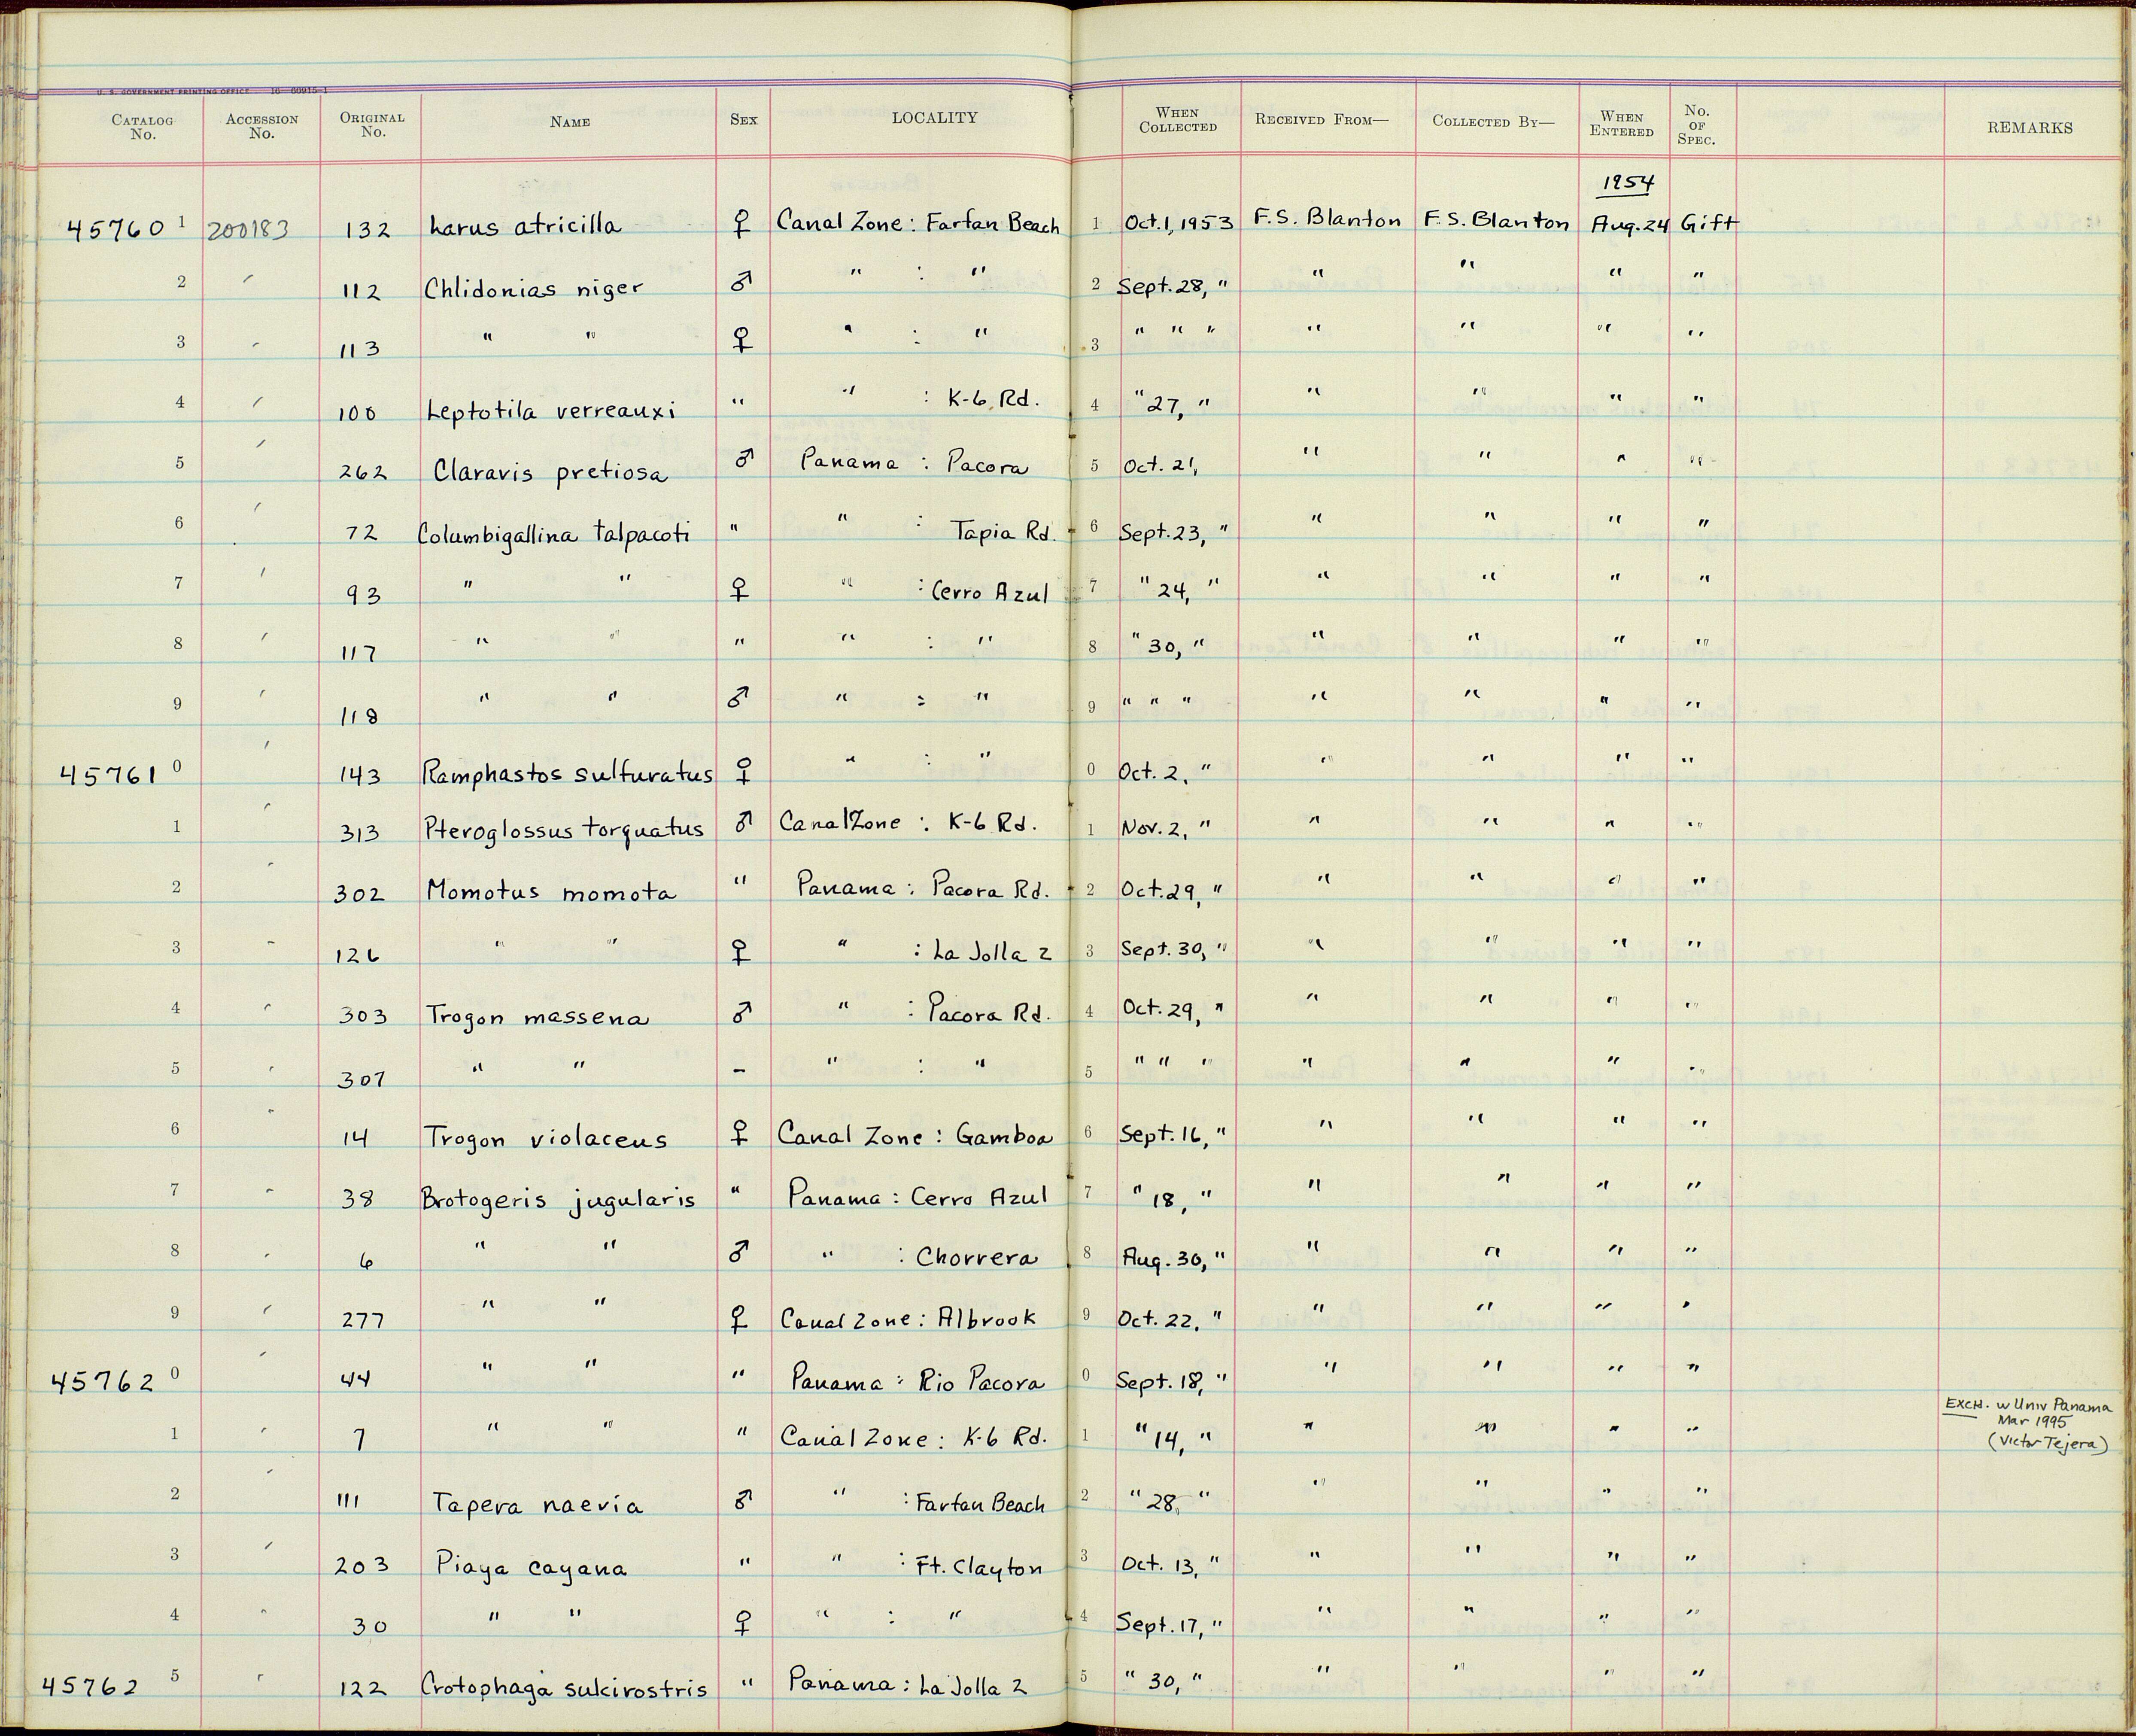 U. S. GOVERNMENT PRINTING OFFICE 16—60915-1
CATALOG No. ACCESSION No. ORIGINAL No. NAME SEX LOCALITY WHEN COLLECTED RECEIVED FROM— COLLECTED BY— WHEN ENTERED No. OF SPEC. REMARKS
1954
45760 1 200183 132 Larus atricilla ♀ Canal Zone: Farfan Beach 1 Oct. 1, 1953 F.S. Blanton F.S. Blanton Aug. 24 Gift
2 " 112 Chlidonias niger ♂ " : " 2 Sept. 28, " " " " "
3 " 113 " " ♀ " : " 3 " " " " " " "
4 " 100 Leptotila verreauxi " " : K-6 Rd. 4 " 27, " " " " "
5 " 262 Claravis pretiosa ♂ Panama : Pacora 5 Oct. 21, " " " "
6 " 72 Columbigallina talpacoti " " : Tapia Rd. 6 Sept. 23, " " " " "
7 " 93 " " ♀ " : Cerro Azul 7 " 24, " " " " "
8 " 117 " " " " : " 8 " 30, " " " " "
9 " 118 " " ♂ " : " 9 " " " " " " "
45761 0 " 143 Ramphastos sulfuratus ♀ " : " 0 Oct. 2, " " " " "
1 " 313 Pteroglossus torquatus ♂ Canal Zone : K-6 Rd. 1 Nov. 2, " " " " "
2 " 302 Momotus momota " Panama : Pacora Rd. 2 Oct. 29, " " " " "
3 " 126 " " ♀ " : La Jolla 2 3 Sept. 30, " " " " "
4 " 303 Trogon massena ♂ " : Pacora Rd. 4 Oct. 29, " " " " "
5 " 307 " " – " : " 5 " " " " " " "
6 " 14 Trogon violaceus ♀ Canal Zone : Gamboa 6 Sept. 16, " " " " "
7 " 38 Brotogeris jugularis " Panama : Cerro Azul 7 " 18, " " " " "
8 " 6 " " ♂ " : Chorrera 8 Aug. 30, " " " " "
9 " 277 " " ♀ Canal Zone : Albrook 9 Oct. 22, " " " " "
45762 0 " 44 " " " Panama : Rio Pacora 0 Sept. 18, " " " " "
1 " 7 " " " Canal Zone : K-6 Rd. 1 " 14, " " " " " Exch. w Univ Panama
Mar 1995
(Victor Tejera)
2 " 111 Tapera naevia ♂ " : Farfan Beach 2 " 28, " " " " "
3 " 203 Piaya cayana " " : Ft. Clayton 3 Oct. 13, " " " " "
4 " 30 " " ♀ " : " 4 Sept. 17, " " " " "
45762 5 " 122 Crotophaga sulcirostris " Panama : La Jolla 2 5 " 30, " " " " "